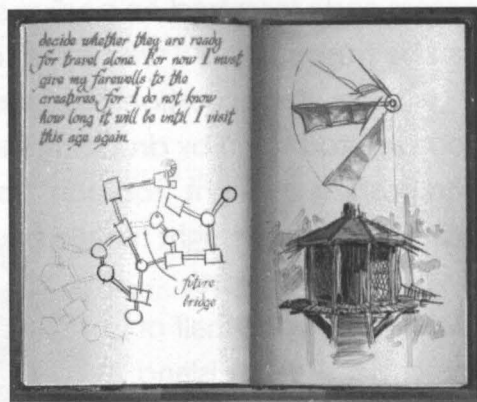 decide whether they are ready
for travel alone. For now I must
give my farewells to the
creatures, for I do not know
how long it will be until I visit
this age again.
future
bridge